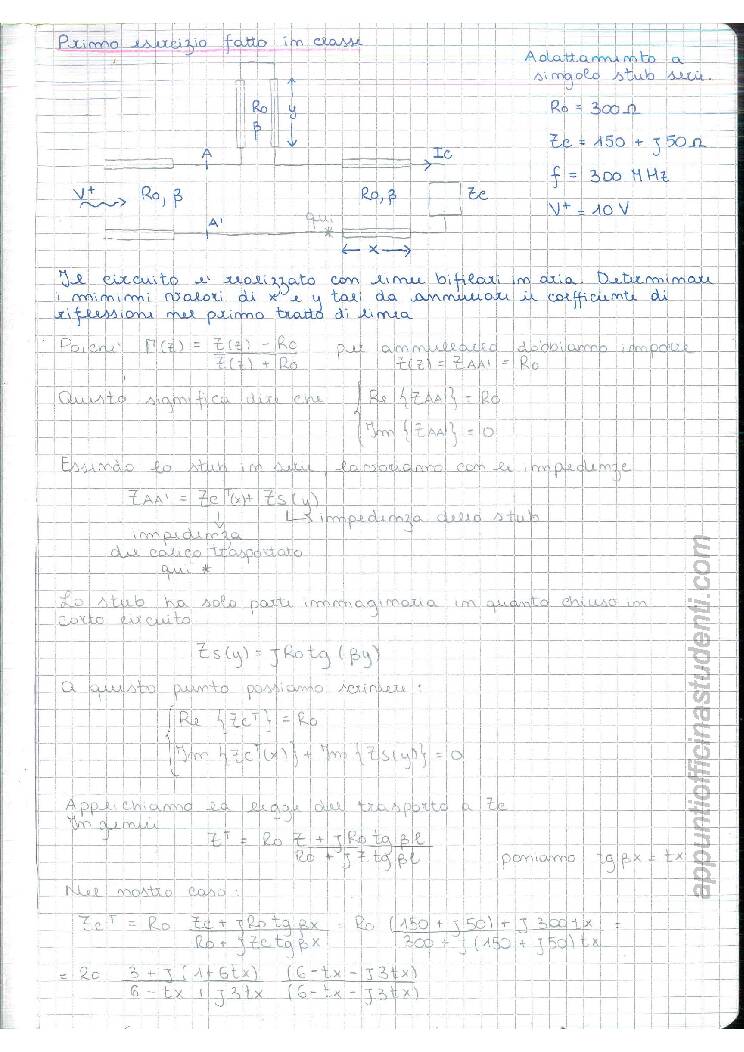 Primo esercizio fatto in classe
Adattamento a
singolo stub serie.
Ro = 300 Ω
Zc = 150 + j50 Ω
f = 300 MHz
V+ = 10 V
Ro
β
y
A
Ic
V+
Ro, β
Ro, β
Zc
A'
qui
*
x
Il circuito è realizzato con linee bifilari in aria. Determinare
i minimi valori di x e y tali da annullare il coefficiente di
riflessione nel primo tratto di linea
Poiché: Γ(z) = Z(z) - Ro / Z(z) + Ro per annullarlo dobbiamo imporre
Z(z) = ZAA' = Ro
Questo significa dire che { Re {ZAA'} = Ro
Im {ZAA'} = 0
Essendo lo stub in serie, lavoriamo con le impedenze
ZAA' = ZcT(x) + Zs(y)
impedenza dello stub
impedenza
del carico trasportato
qui *
Lo stub ha solo parte immaginaria in quanto chiuso in
corto circuito
Zs(y) = jRo tg (βy)
A questo punto possiamo scrivere:
{ Re {ZcT} = Ro
Im {ZcT(x)} + Im {Zs(y)} = 0
Applichiamo la legge del trasporto a Zc
In genere
ZT = Ro Z + jRo tg βl / Ro + jZ tg βl poniamo tg βx = tx
Nel nostro caso:
ZcT = Ro Zc + jRo tg βx / Ro + jZc tg βx = Ro (150 + j50) + j 300 tx / 300 + j (150 + j50) tx =
= Ro 3 + j (1+6tx) / 6 - tx + j3tx (6 - tx - j3tx) / (6 - tx - j3tx)
appuntiofficinastudenti.com